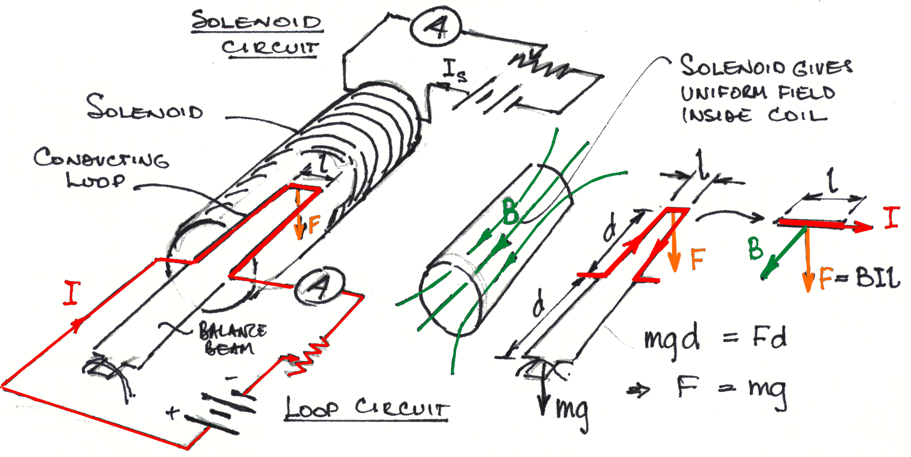 SOLENOID
CIRCUIT
A
Is
SOLENOID
CONDUCTING
LOOP
l
F
I
A
BALANCE
BEAM
-
+
LOOP CIRCUIT
SOLENOID GIVES
UNIFORM FIELD
INSIDE COIL
B
d
d
l
F
mg
l
I
B
F = BIl
mgd = Fd
⇒ F = mg